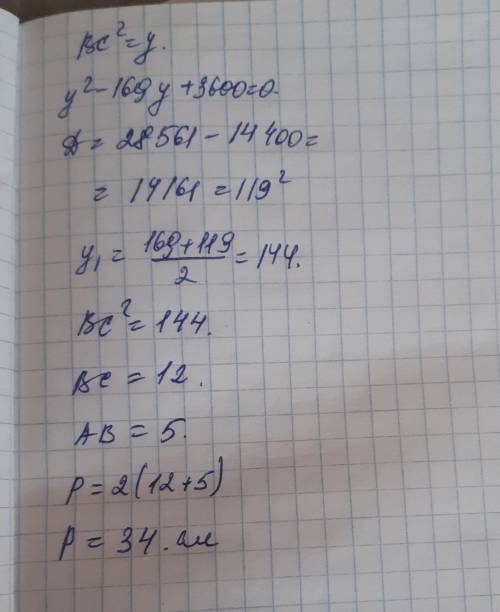 BC² = y.
y² - 169y + 3600 = 0.
D = 28561 - 14400 =
= 14161 = 119²
y₁ = (169+119)/2 = 144.
BC² = 144.
BC = 12.
AB = 5.
P = 2(12+5)
P = 34. см